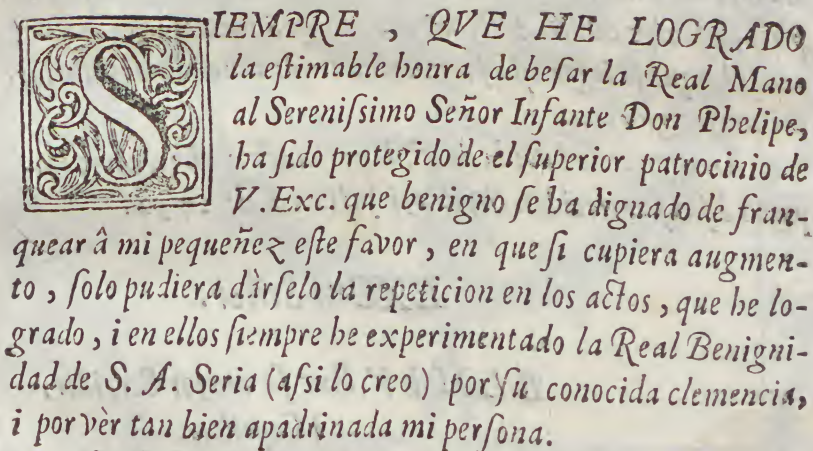 SIEMPRE , QVE HE LOGRADO
la eſtimable honra de beſar la Real Mano
al Sereniſsimo Señor Infante Don Phelipe,
ha ſido protegido de el ſuperior patrocinio de
V. Exc. que benigno ſe ha dignado de fran-
quear â mi pequeñez eſte favor , en que ſi cupiera augmen-
to , ſolo pudiera dàrſelo la repeticion en los actos , que he lo-
grado , i en ellos ſiempre he experimentado la Real Benigni-
dad de S. A. Seria (aſsi lo creo ) por ſu conocida clemencia,
i por vèr tan bien apadrinada mi perſona.